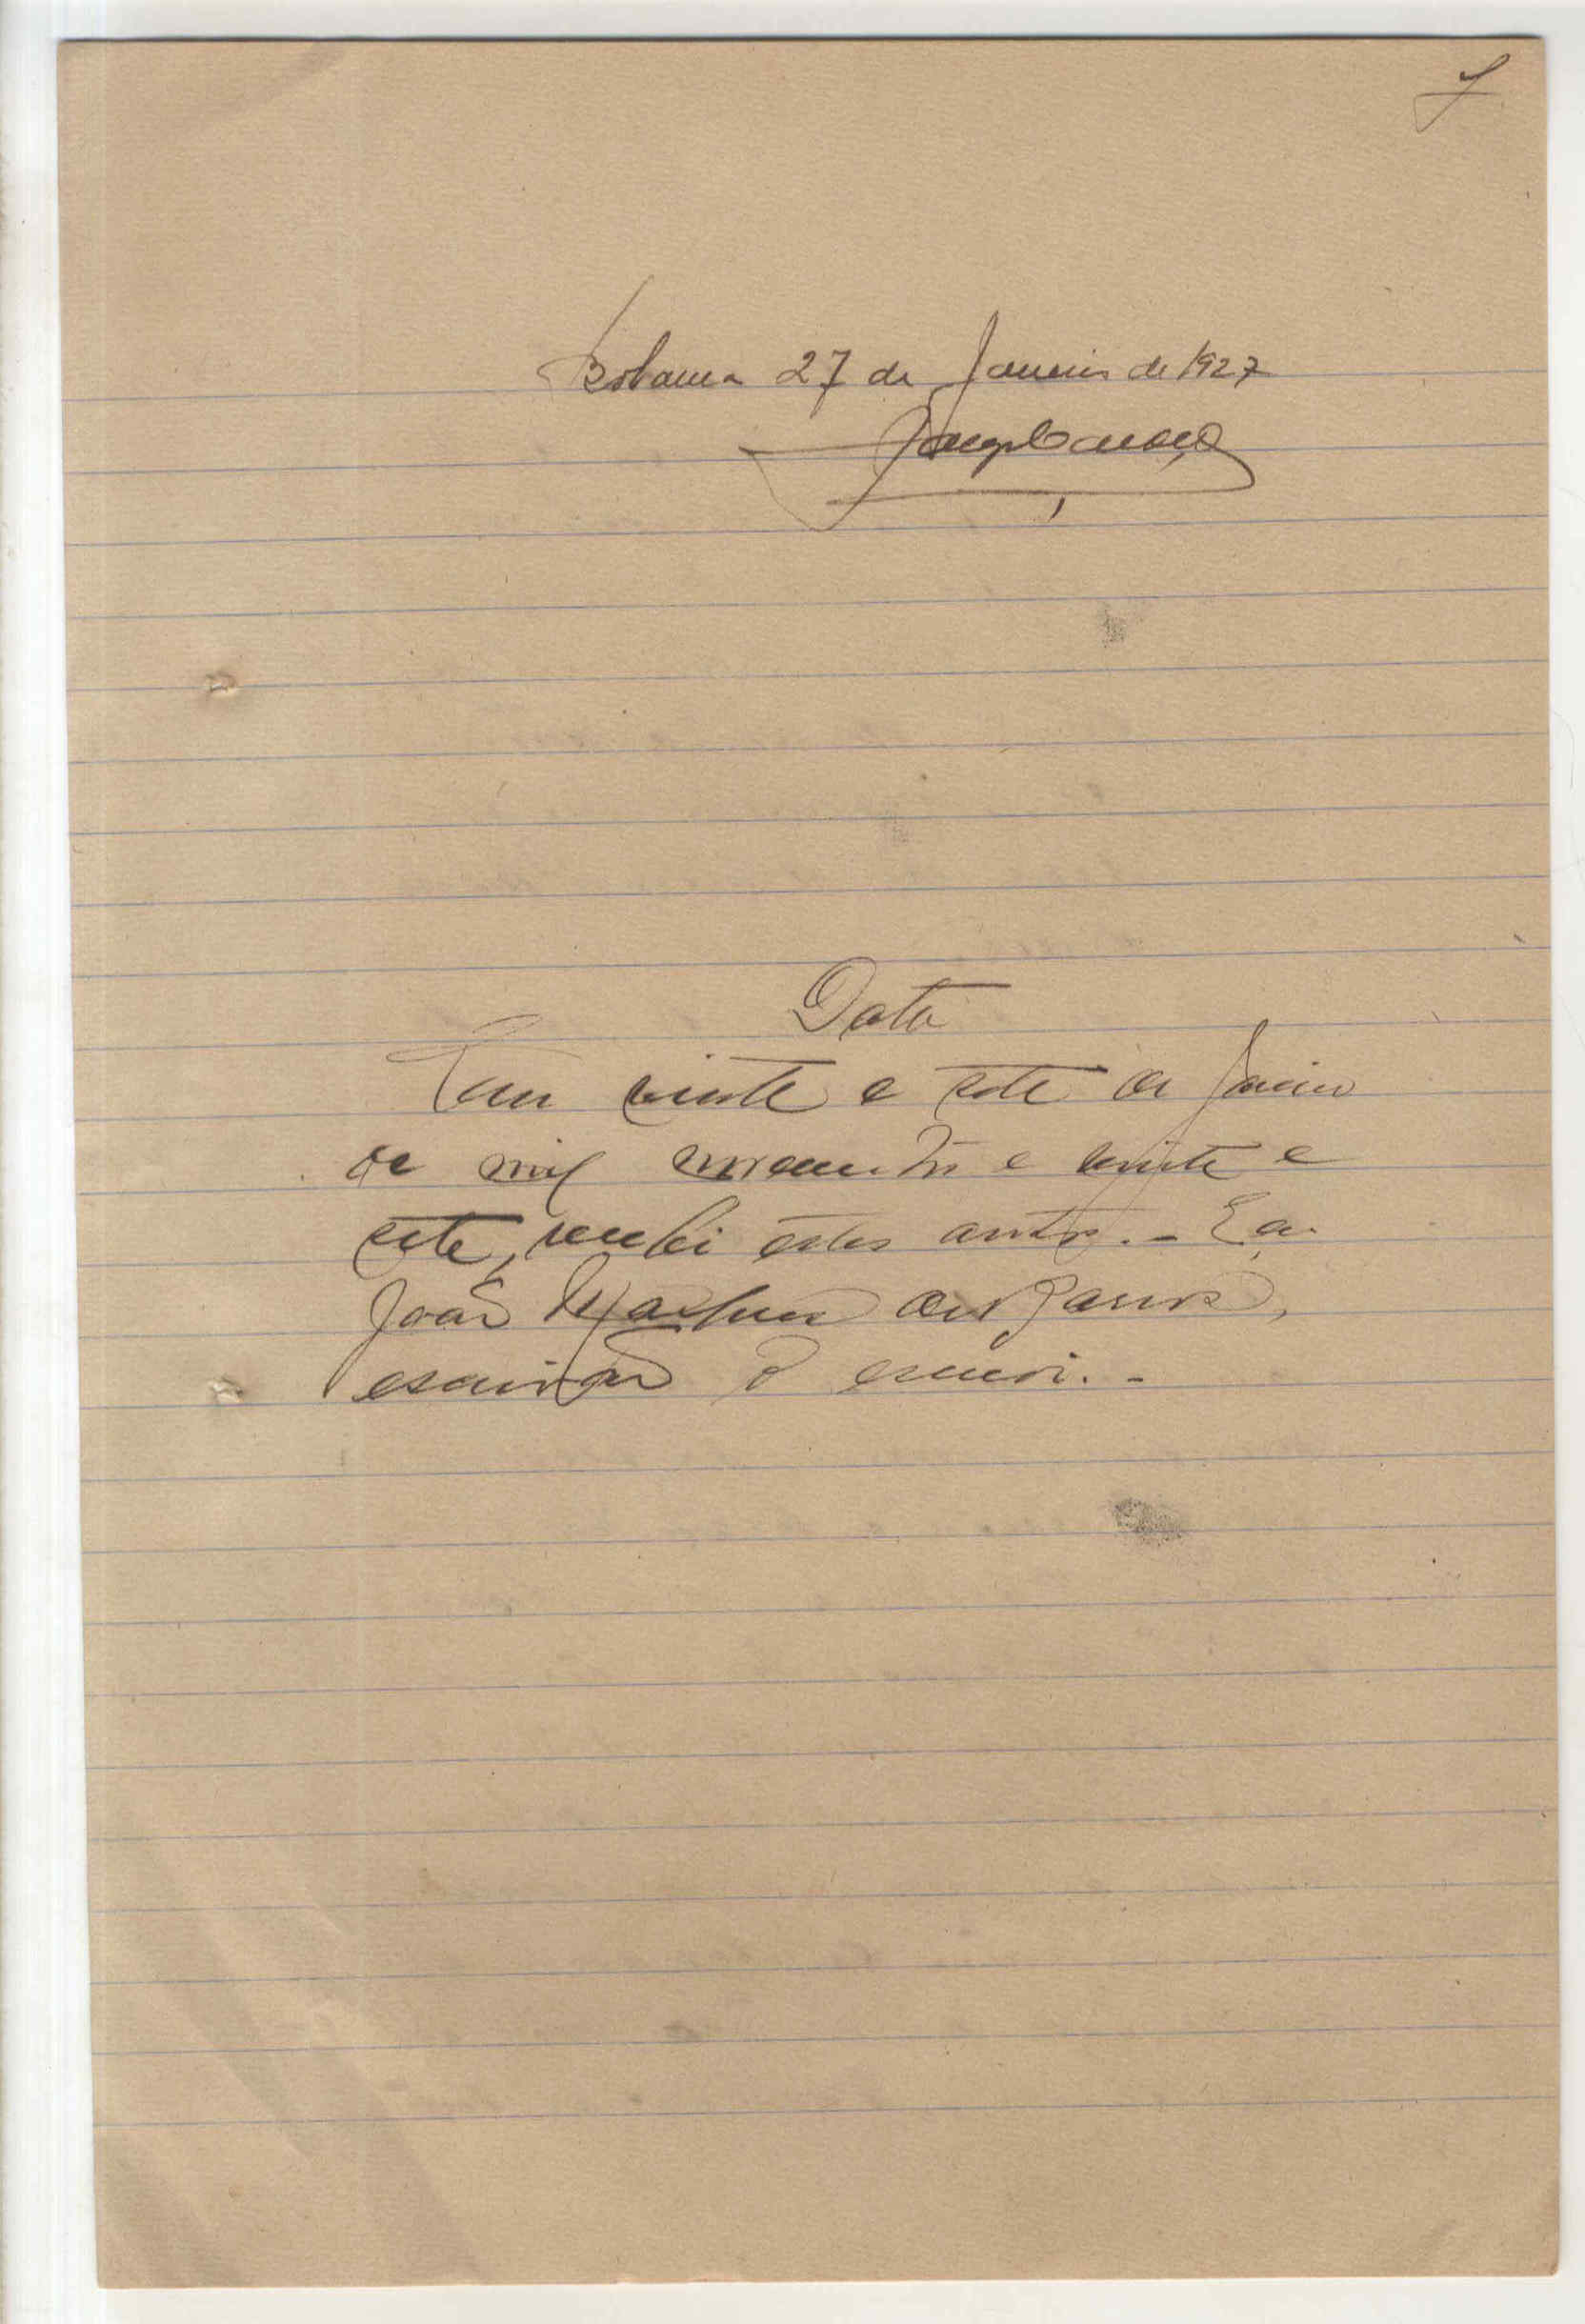 7
Bolama 27 de Janeiro de 1927
Data
Em vinte e sete de Janeiro
de mil novecentos e vinte e
sete, recebi estes autos. - Eu
João de Barros,
escrivão o escrevi. -